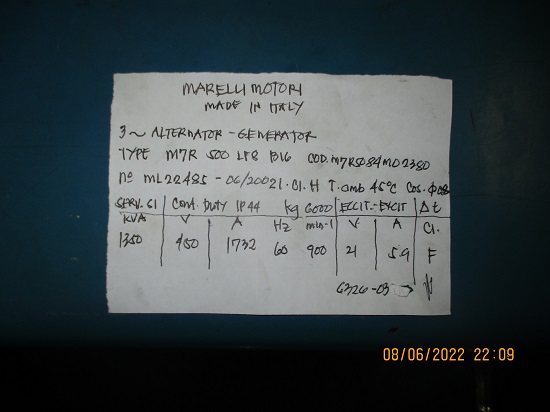 MARELLI MOTORI
MADE IN ITALY
3~ ALTERNATOR - GENERATOR
TYPE M7R 500 LT8 B16 COD. M7R5084MD2380
No ML22485 - 06/2002 I.Cl. H T. amb 45°C Cos. φ 0.8
SERV. S1 CONT. DUTY IP44 kg 6000 ECCIT.-EXCIT Δt
KVA V A Hz min-1 V A Cl.
1350 450 1732 60 900 21 5.9 F
6326-03
08/06/2022 22:09